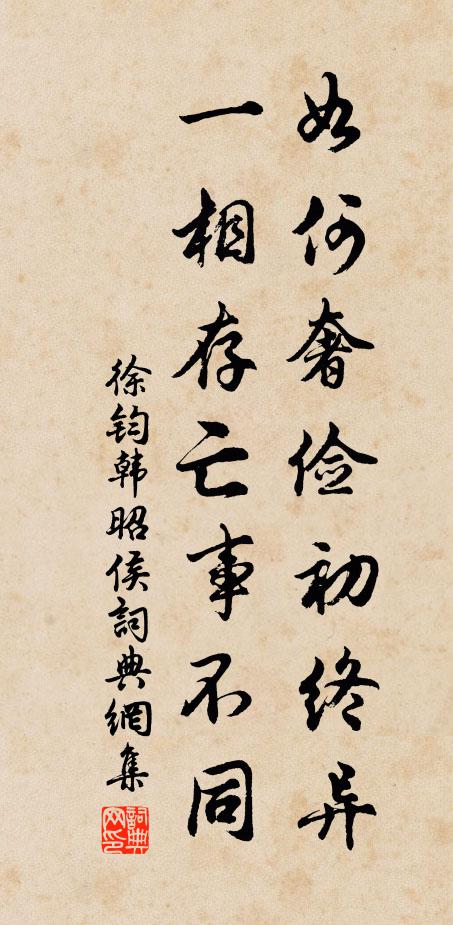 如何奢俭初终异
一相存亡事不同
徐钧韩昭侯詞典網集
詞典网印